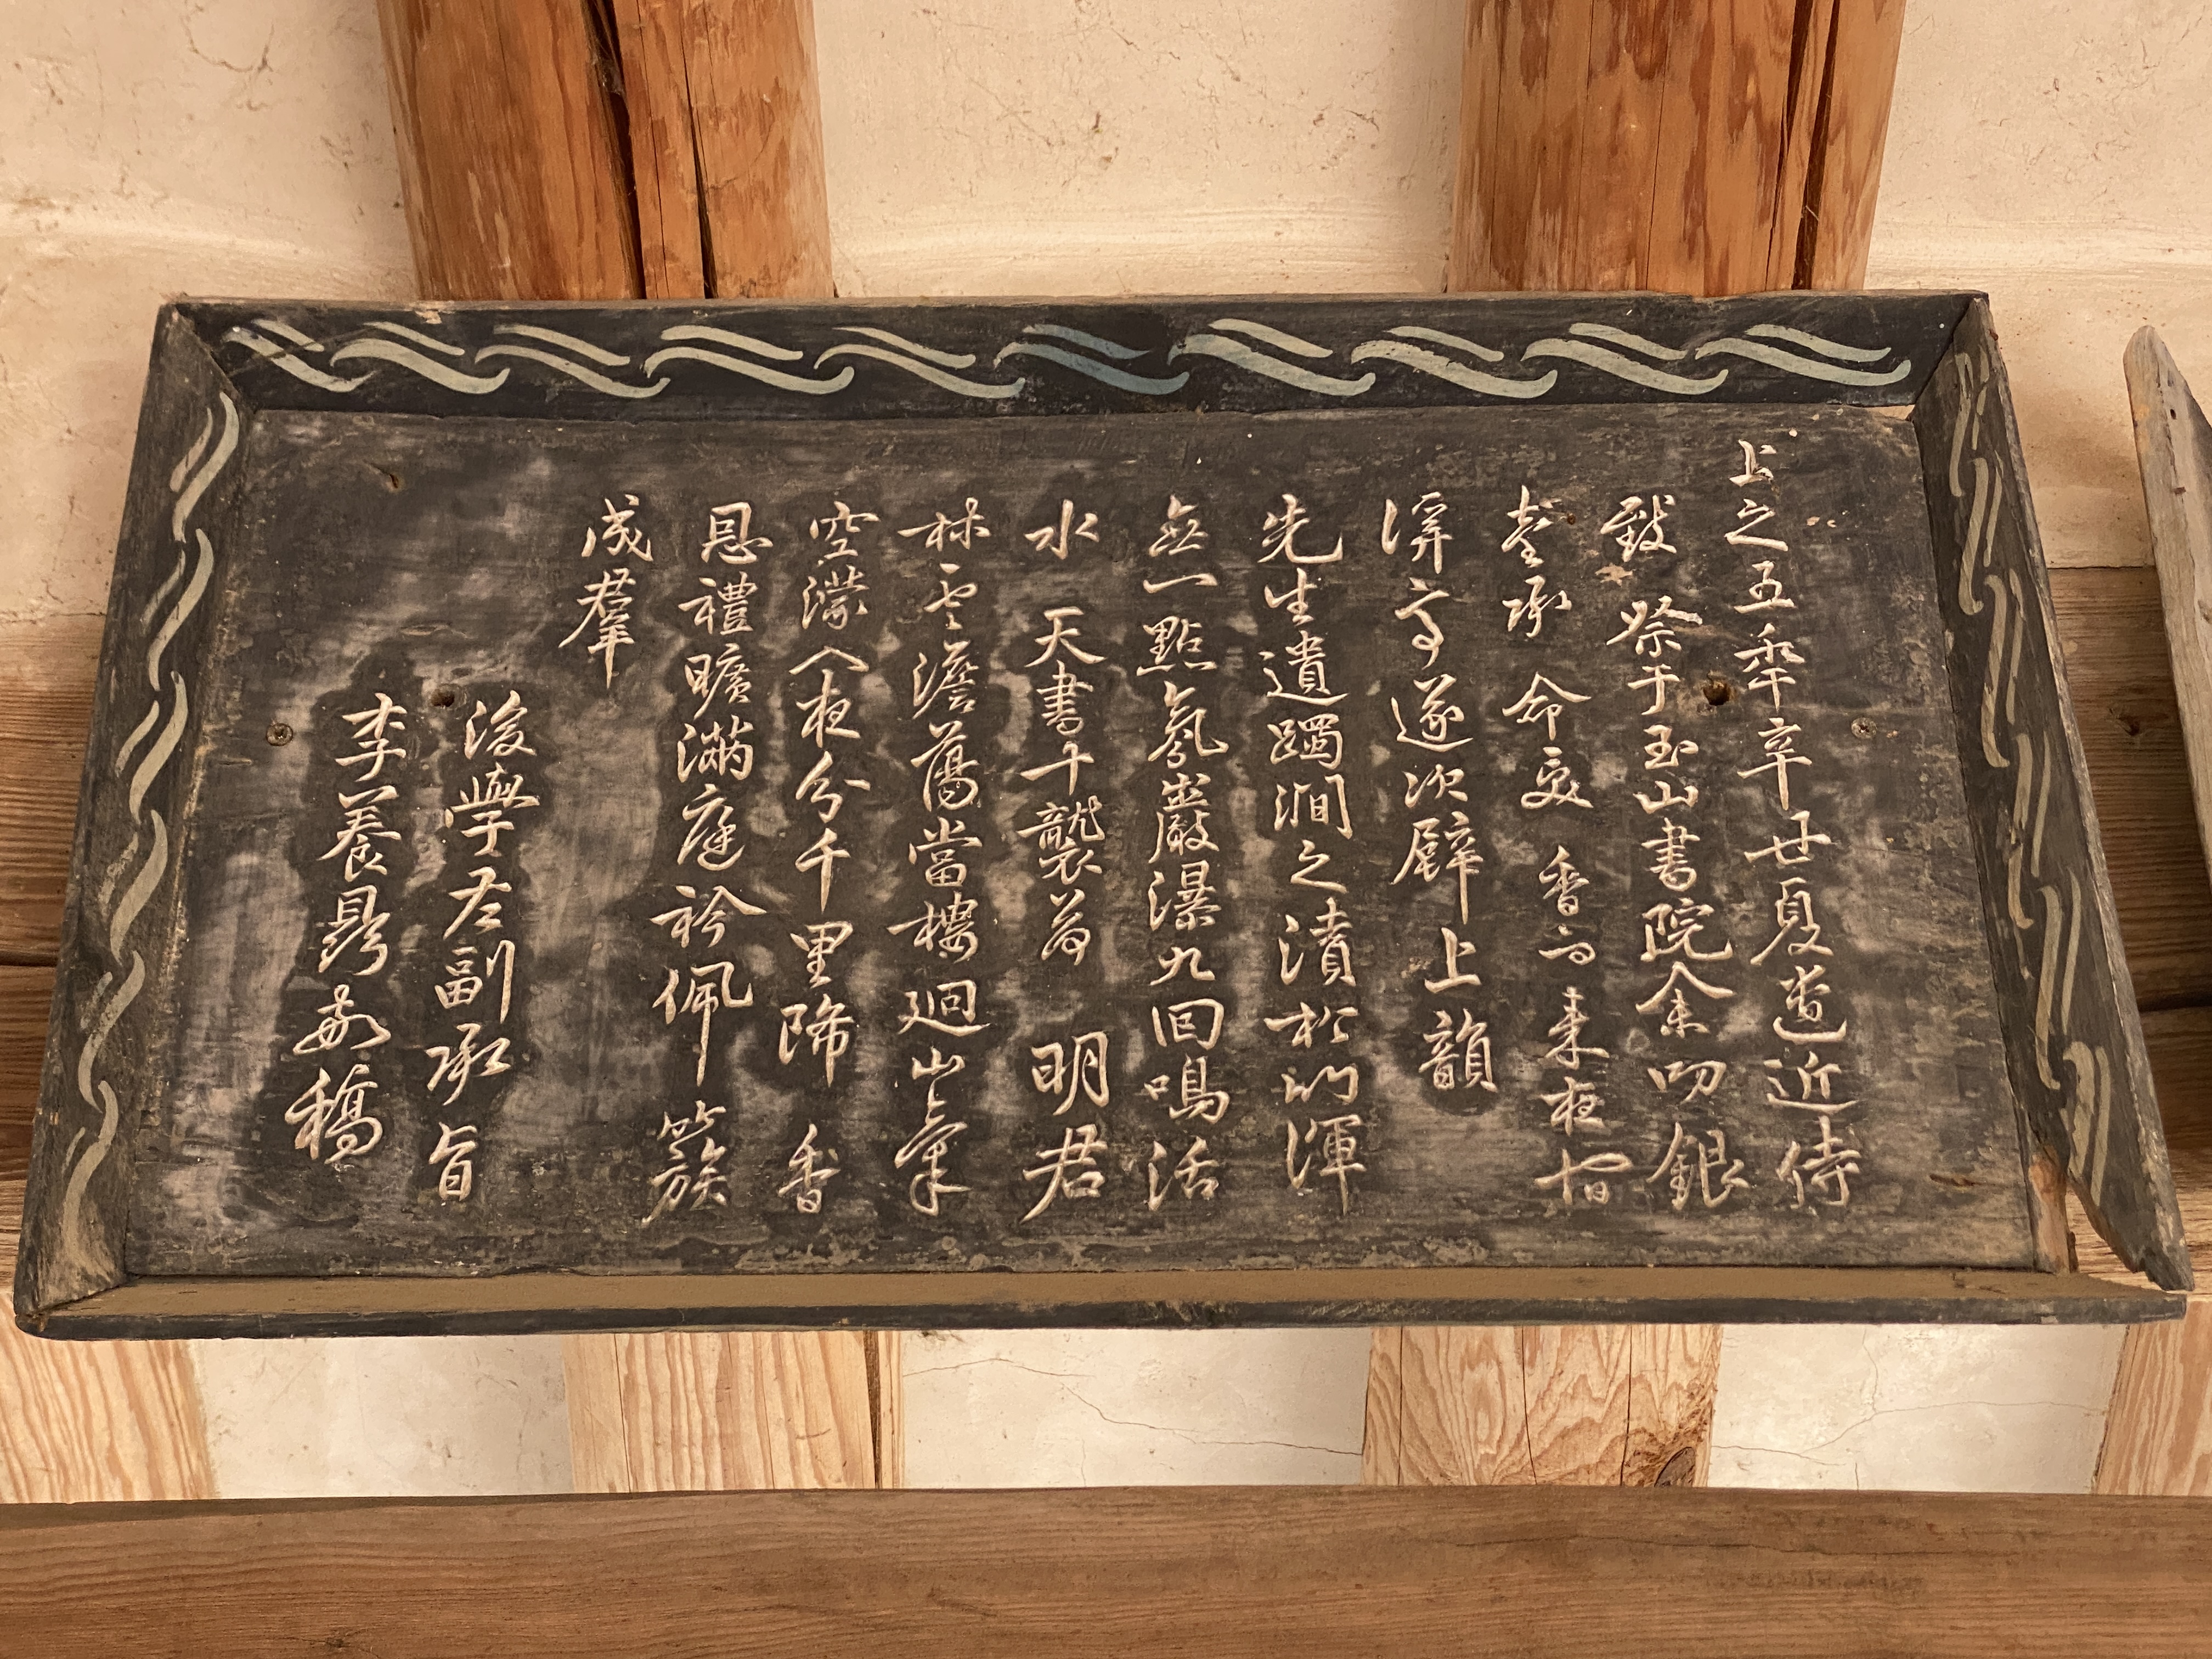 上之五年辛丑夏遣近侍
致 祭于玉山書院余叨銀
臺承 命受 香而來夜宿
溪亭遂次壁上韻
先生遺躅澗之濱於訥渾
無一點氛巖瀑九回鳴活
水 天書千襲荷 明君
林雲澹蕩當樓迥山氣
空濛入夜分千里降 香
恩禮曠滿庭衿佩 簇
成羣
後學右副承旨
李養鼎 敬稿